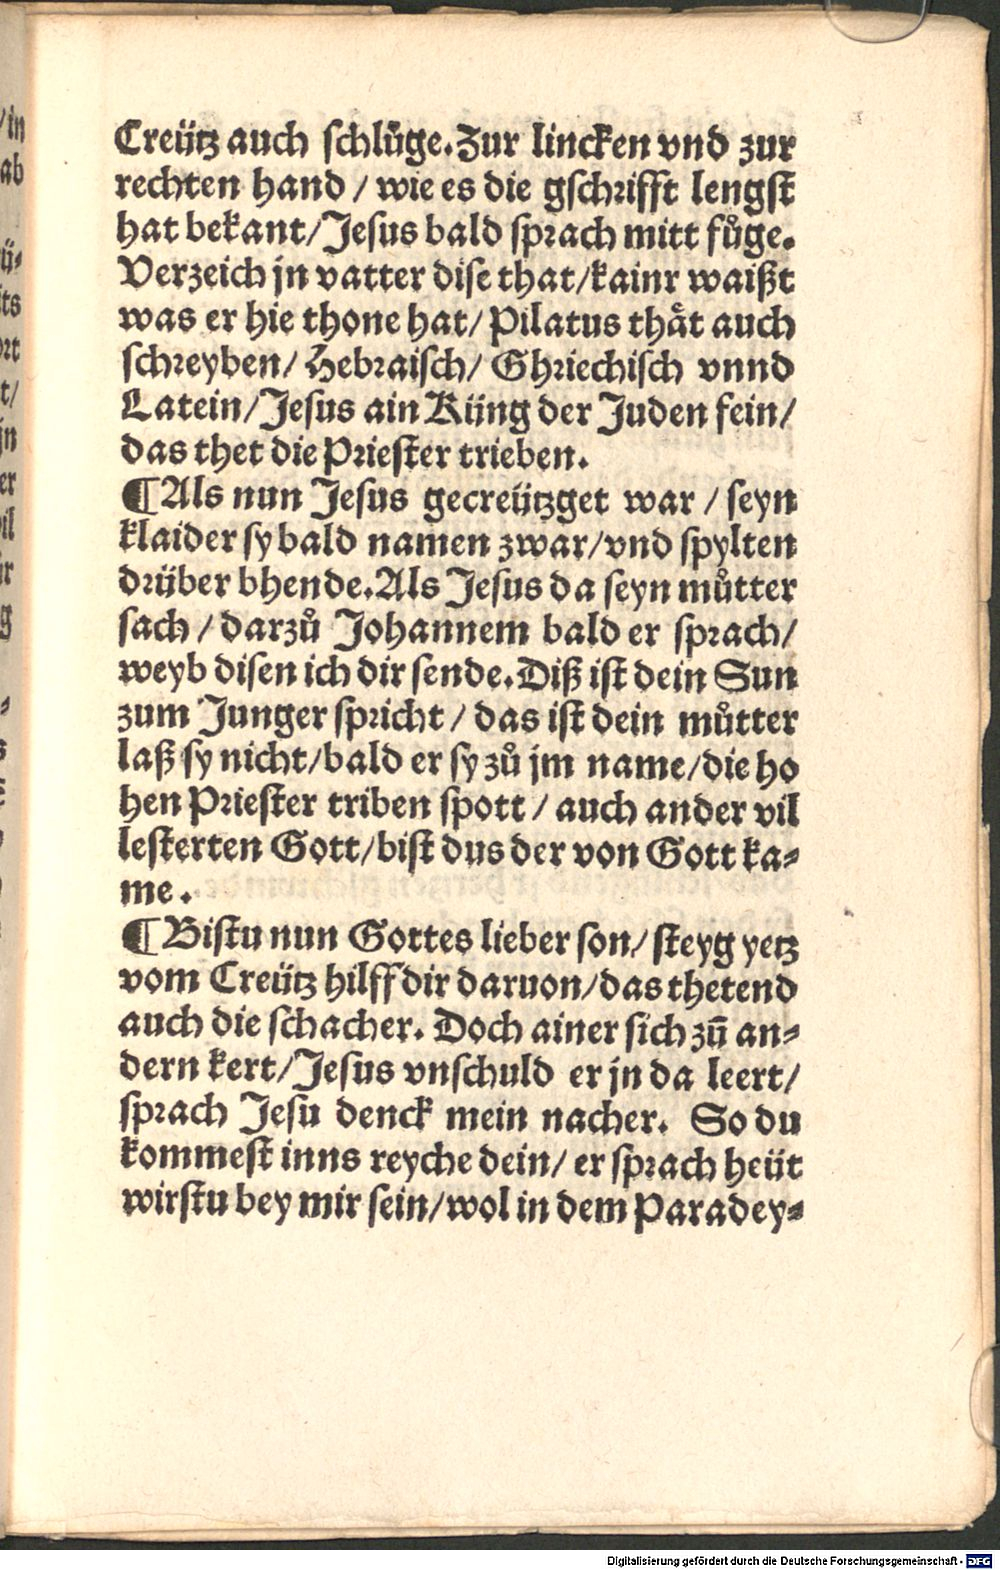 Creütz auch schlůge. Zur lincken vnd zur
rechten hand / wie es die gschrifft lengst
hat bekant / Jesus bald sprach mitt fůge.
Verzeich jn vatter dise that / kainr waißt
was er hie thone hat / Pilatus thåt auch
schreyben / Hebraisch / Ghriechisch vnnd
Latein / Jesus ain Küng der Juden fein /
das thet die Priester trieben.
¶ Als nun Jesus gecreützget war / seyn
klaider sy bald namen zwar / vnd spylten
drüber bhende. Als Jesus da seyn můtter
sach / darzů Johannem bald er sprach /
weyb disen ich dir sende. Diß ist dein Sun
zum Junger spricht / das ist dein můtter
laß sy nicht / bald er sy zů jm name / die ho
hen Priester triben spott / auch ander vil
lesterten Gott / bist dus der von Gott ka⸗
me.
¶ Bistu nun Gottes lieber son / steyg yetz
vom Creütz hilff dir daruon / das thetend
auch die schacher. Doch ainer sich zū an⸗
dern kert / Jesus vnschuld er jn da leert /
sprach Jesu denck mein nacher. So du
kommest inns reyche dein / er sprach heüt
wirstu bey mir sein / wol in dem Paradey⸗
Digitalisierung gefördert durch die Deutsche Forschungsgemeinschaft - DFG